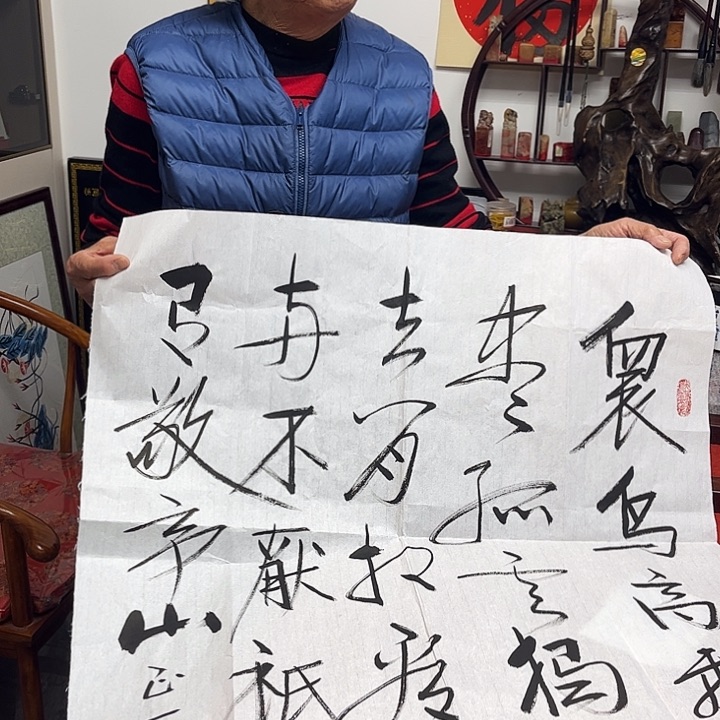 眾鳥高飛
盡孤雲獨
去閒相看
兩不厭祇
有敬亭山